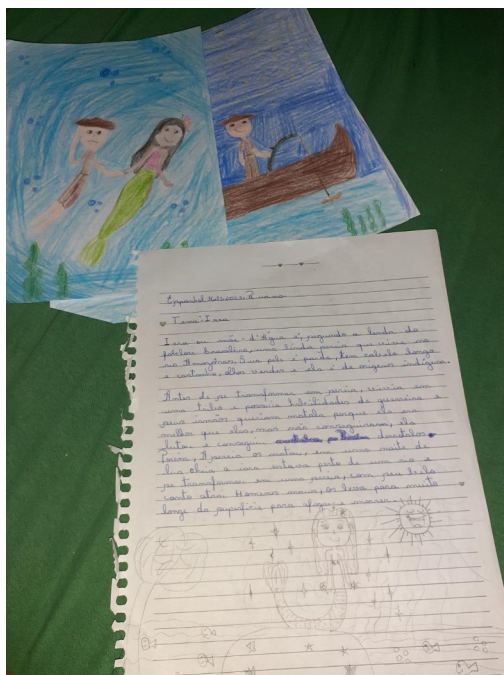 Tema: Iara
Iara ou mãe-d'Água é, segundo a lenda do
folclore brasileiro, uma linda sereia que vive no
rio Amazonas, Sua pele é parda, tem cabelo longo
e castanho, olhos verdes e ela é de origem indígena.
Antes de se transformar em sereia, vivia em
uma tribo e possuia habilidades de guerreira e
seus irmãos queriam matala porque ela era
melhor que eles, mas não conseguiram, ela
lutou e conseguiu derrotalos.
Porém, A sereia, os matou, em uma noite de
lua cheia a iara estava perto de um rio e
se transformou em uma sereia, com seu belo
canto atrai Homens maus, os leva para muito
longe da superfície para afogar e morrer.